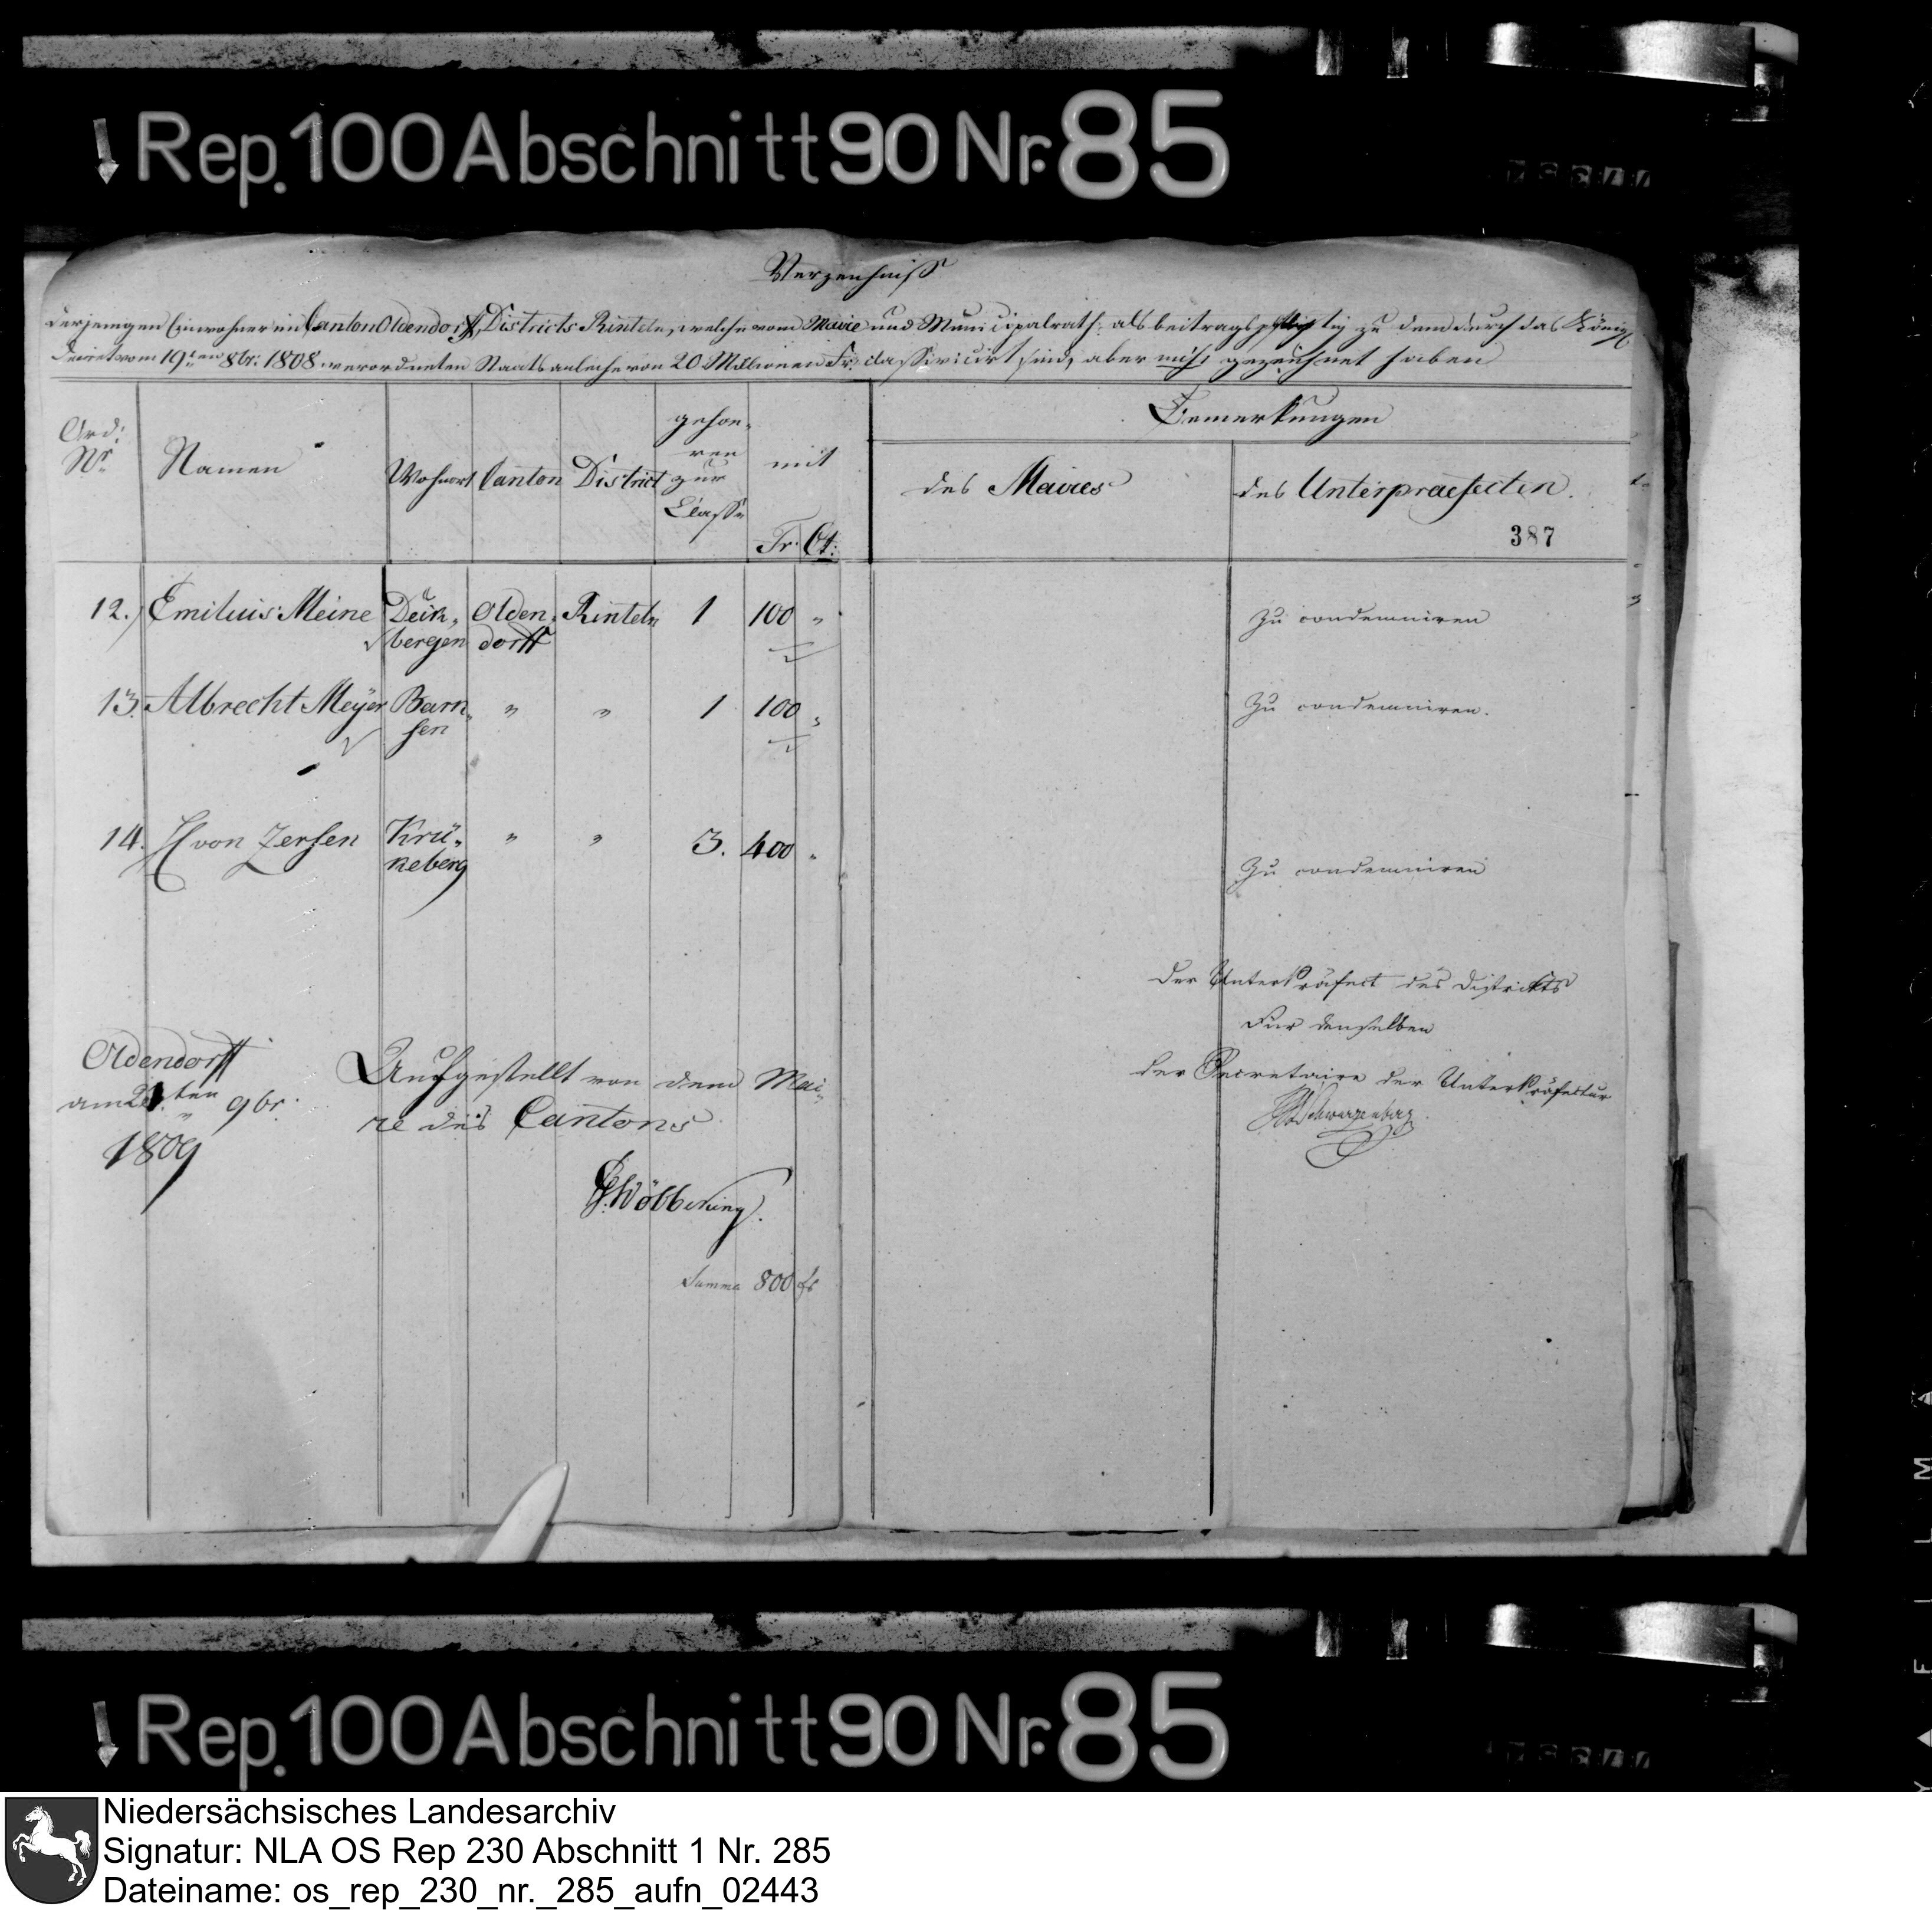 Rep. 100 Abschnitt 90 Nr. 85
Verzeichniss
derjenigen Einwohner im Canton Oldendorff, Districts Rinteln, welche vom Maire und Municipalrath: als beitragspflichtig zu dem durch das Königl.
Decret vom 19ten 8br: 1808 verordneten Staatsanleihe von 20 Millionen Fr. classivicirt sind, aber nicht gezeichnet haben
Ord: Nr. Namen Wohnort Canton District gehoe-ren zur Classe mit Fr. Ct. Bemerkungen
des Maires des Unterpraefecten.
387
12.) Emilius Meine Deck- Olden- Rinteln 1 100 " Zu condemniren
bergen dorff
13. Albrecht Meÿer Barn- " " 1 100 " Zu condemniren.
sen
14. H von Zersen Krü- " " 3. 400 " Zu condemniren
keberg
Der UnterPräfect des Districkts
Für denselben
der Secretaire der UnterPräfectur
Schwarzenberg
Oldendorff
am ten 9br.
1809
Aufgestellt von dem Mai-
re des Cantons
Wöbbeking.
Summa 800 fr
Rep. 100 Abschnitt 90 Nr. 85
Niedersächsisches Landesarchiv
Signatur: NLA OS Rep 230 Abschnitt 1 Nr. 285
Dateiname: os_rep_230_nr._285_aufn_02443